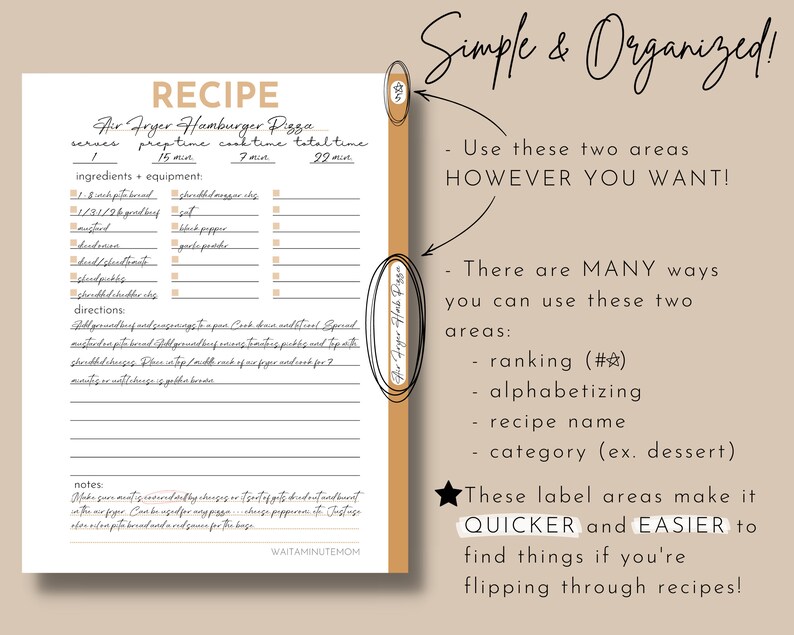 Simple & Organized!
RECIPE
Air Fryer Hamburger Pizza
serves prep time cook time total time
1 15 min. 7 min. 22 min.
ingredients + equipment:
1 - 8 inch pita bread
1/3-1/2 lb grnd beef
mustard
diced onion
diced/sliced tomato
sliced pickles
shredded cheddar chs.
shredded mozzar chs.
salt
black pepper
garlic powder
directions:
Add ground beef and seasonings to a pan. Cook, drain, and let cool. Spread
mustard on pita bread. Add ground beef, onions, tomatoes, pickles, and top with
shredded cheeses. Place in top/middle rack of air fryer and cook for 7
minutes or until cheese is golden brown.
notes:
Make sure meat is covered well by cheeses or it sort of gets dried out and burnt
in the air fryer. Can be used for any pizza - - - cheese, pepperoni, etc. Just use
olive oil on pita bread and a red sauce for the base.
WAITAMINUTEMOM
☆
5
Air Fryer Hamb Pizza
- Use these two areas
HOWEVER YOU WANT!
- There are MANY ways
you can use these two
areas:
- ranking (#☆)
- alphabetizing
- recipe name
- category (ex. dessert)
★These label areas make it
QUICKER and EASIER to
find things if you're
flipping through recipes!